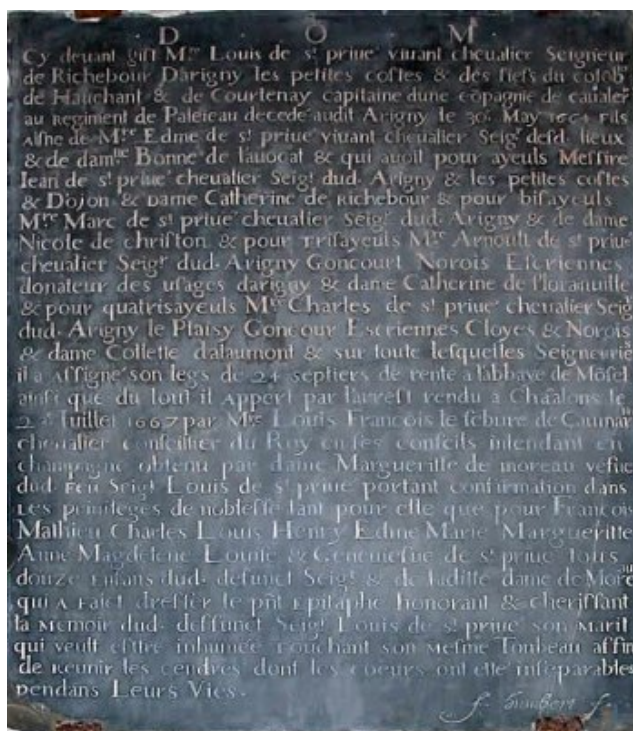 D O M
Cy deuant gist M.re Louis de s.t priue' viuant cheualier Seigneur
de Richebour Darigny les petites costes & des fiefs du
de Hauchant & de Courtenay capitaine dune cōpagnie de caualer
au Regiment de Paleicau decede' audit Arigny le 30. May fils
Aisne de M.re Edme de s.t priue' viuant cheualier Seig.r desd. lieux
& de dam.lle Bonne de lauocat & qui auoit pour ayeuls Messire
Iean de s.t priue' cheualier Seig.r dud. Arigny & les petites costes
& Dojon & Dame Catherine de Richebour & pour bisayeuls
M.re Marc de s.t priue' cheualier Seig.r dud. Arigny & de dame
Nicole de christon & pour Trisayeuls M.re Arnoult de s.t priue
cheualier Seig.r dud. Arigny Goncourt Norois Escriennes
donateur des usages darigny & dane Catherine de floranuille
& pour quatrisayeuls M.re Charles de s.t priue' cheualier Seig
dud. Arigny le Plaisy Goncour Escriennes Cloyes & Norois
& dame Collette dalaumont & sur toute lesquelles Seigneurie
il a Assigne' son legs de 24 septiers de rente a labbaye de
ainsi que du tout il Appert par larrest rendu a Chaalons le
Iuillet 1667 par M.re Louis Francois le febure de Caumar
cheualier conseillier du Roy en ses conseils intendant en
champagne obtenu par dame Margueritte de moreau vefue
dud. Feu Seig.r Louis de s.t priue' portant confirmation dans
Les priuileges de noblesse tant pour elle que pour Francois
Mathieu Charles Louis Henry Edme Marie Margueritte
Anne Magdelene Louise & Geneuiefue de s.t priue' tous
douze Enfans dud. defunct Seig.r & de laditte dame de Moreau
qui A Faict dresser le pñt Epitaphe honorant & cherissant
la Memoir dud. deffunct Seig.r Louis de s.t priue' son Marit
qui veult estre inhumee Touchant son Mesme Tonbeau affin
de Reunir les cendres dont les coeurs ont este' inseparables
pendans Leurs Vies.
f. humbert f.